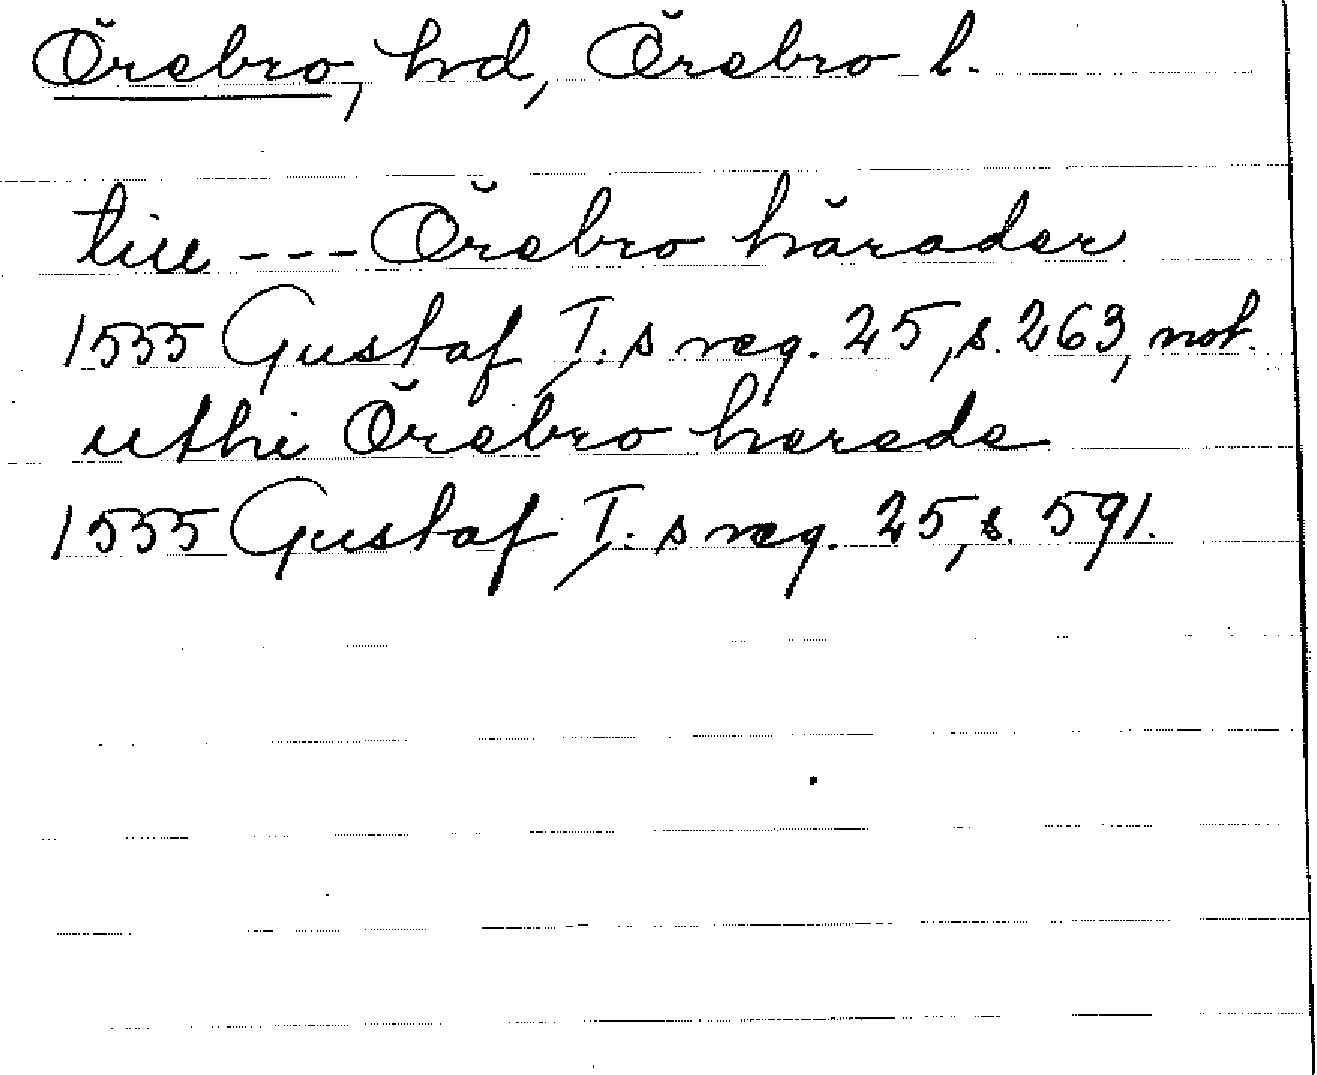 Örebro, hd, Örebro l.
till --- Örebro härader
1555 Gustaf I.s reg. 25, s. 263, not.
uthi Örebro herede
1555 Gustaf I.s reg. 25, s. 591.